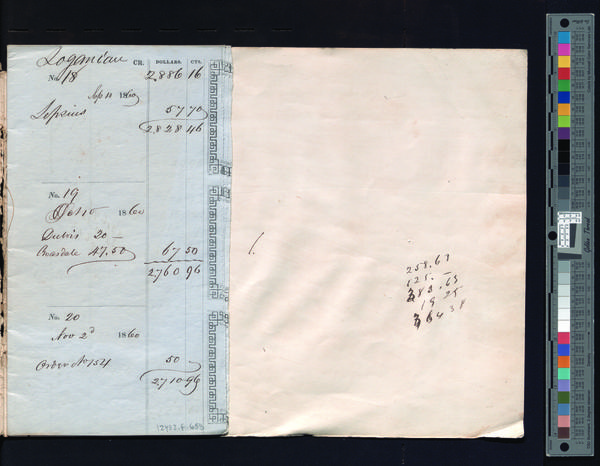 Loganian CR. DOLLARS. CTS.
No. 18 2,886 16
Sep 11 1860
Lepsius 57 70
2828 46
No. 19
Oct 10 1860
Dubois 20 –
Boardale 47.50 67 50
2760 96
No. 20
Nov 2d 1860
Order No 154 50
2710 96
12422.F.653
1.
258.61
125. –
383.63
19 25
364 38